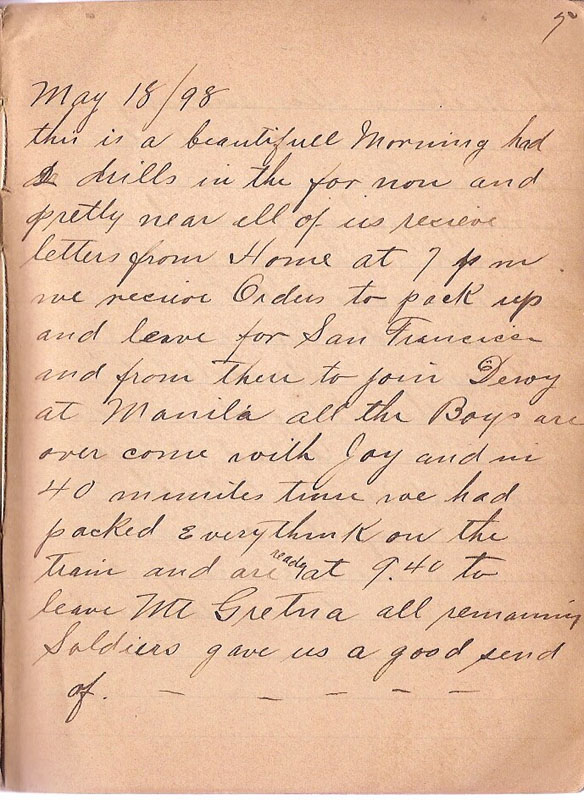 5
May 18/98
this is a beautifull Morning had
2 drills in the for non and
pretty near all of us recieve
letters from Home at 7 p m
we recieve Orders to pack up
and leave for San Francisco
and from there to join Dewy
at Manila all the Boys are
over come with Joy and in
40 minuites time we had
packed Everythink on the
train and are ready at 9.40 to
leave Mt Gretna all remaining
Soldiers gave us a good send
of. — — — — —